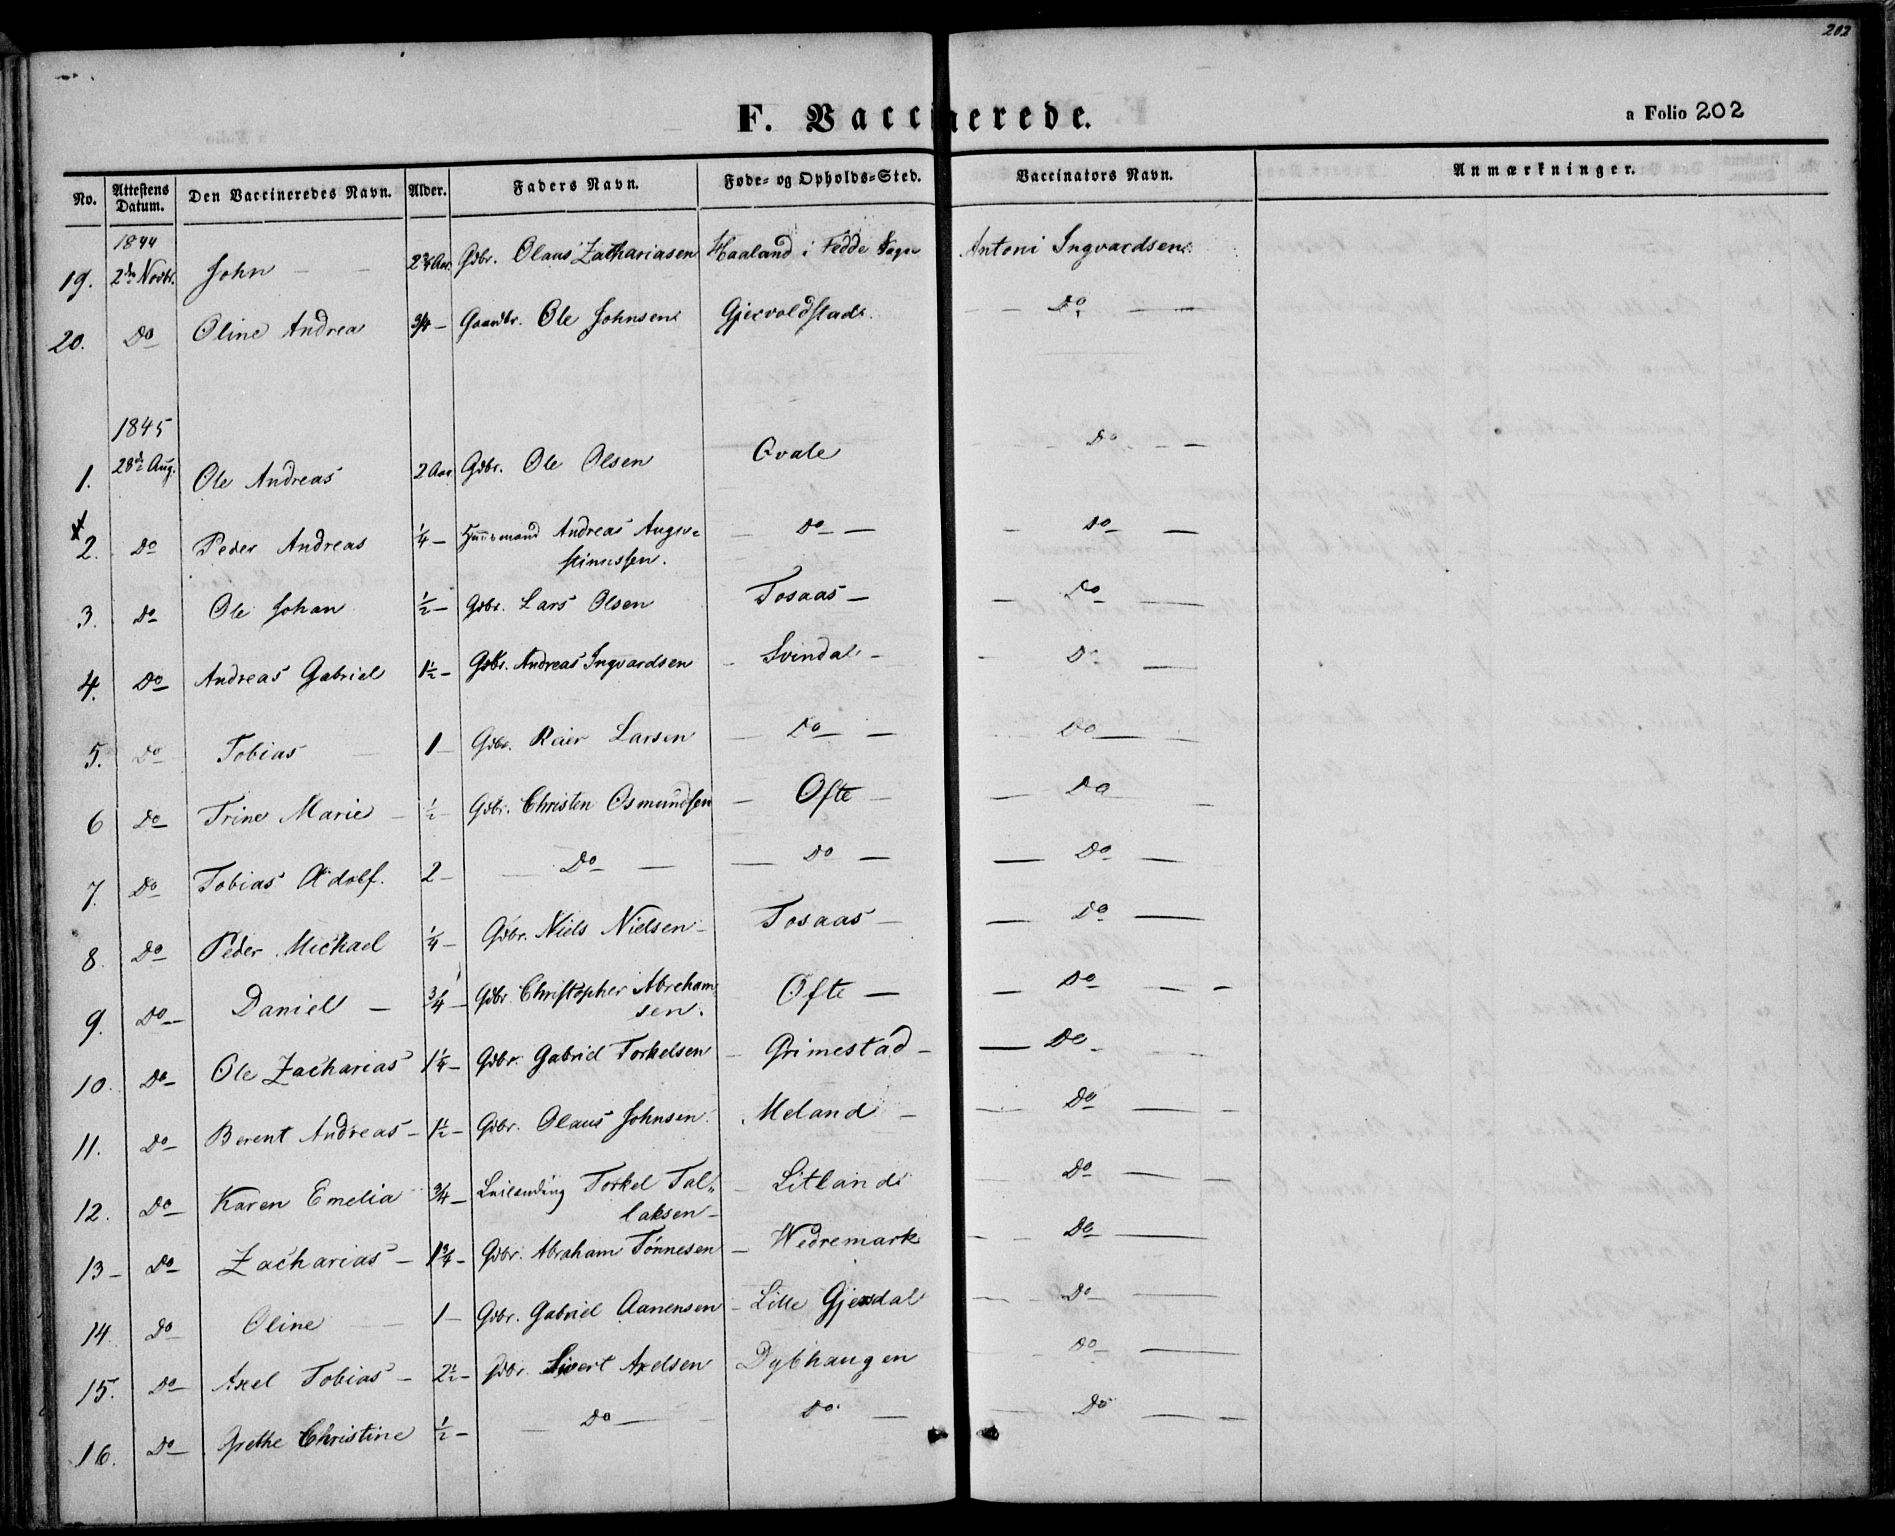 202
F. Vaccinerede.
a Folio 202
No. Attestens Datum. Den Vaccineredes Navn. Alder. Faders Navn. Føde- og Opholds-Sted. Vaccinators Navn. Anmærkninger.
1844
19. 2den Novbr. John — — 2¾ Aar Gdbr. Olaus Zachariasen Haaland i Fedde Sogn Antoni Ingvardsen
20. Do Oline Andrea ¾ — Gaardbr. Ole Johnsen Gjervoldstad. — Do —
1845
1. 28de Aug. Ole Andreas 2 Aar Gdbr. Ole Olsen Qvale — Do — —
2. Do Peder Andreas ¼ — Huusmand Andreas Augu-
stinussen. — Do — — Do —
3. Do Ole Johan ½ — Gdbr. Lars Olsen Tosaas — — Do —
4. Do Andreas Gabriel 1½ — Gdbr. Andreas Ingvardsen — Svindal — — Do —
5. Do Tobias 1 — Gdbr. Reier Larsen — Do — — Do —
6 Do Trine Marie — ½ Gdbr. Christen Osmundsen — Ofte — — Do —
7. Do Tobias Adolf. 2 — — Do — — Do — — Do —
8. Do Peder Michael ¼ — Gdbr. Niels Nielsen — Tosaas — — Do —
9. Do — Daniel — ¾ — Gdbr Christopher Abraham
sen. Ofte — — Do — —
10. Do — Ole Zacharias 1¼ — Gdbr. Gabriel Torkelsen — Grimestad — — Do —
11. Do — Berent Andreas — 1½ — Gdbr. Olaus Johnsen. Meland — — Do — —
12. Do — Karen Emelia ¾ — Leilending Torkel Tal„
laksen — — Litland — Do — —
13 — Do — Zacharias — 1¾ — Gdbr. Abraham Tönnesen — Wedremark — — Do —
14. Do — Oline — 1 — Gdbr. Gabriel Aanensen — Lille Gjerdal — — Do —
15. Do — Axel Tobias — 2½ — Gdbr. Sivert Axelsen Dybhaugen — Do —
16. Do — Grethe Christine ½ — — Do — Do — — Do — —